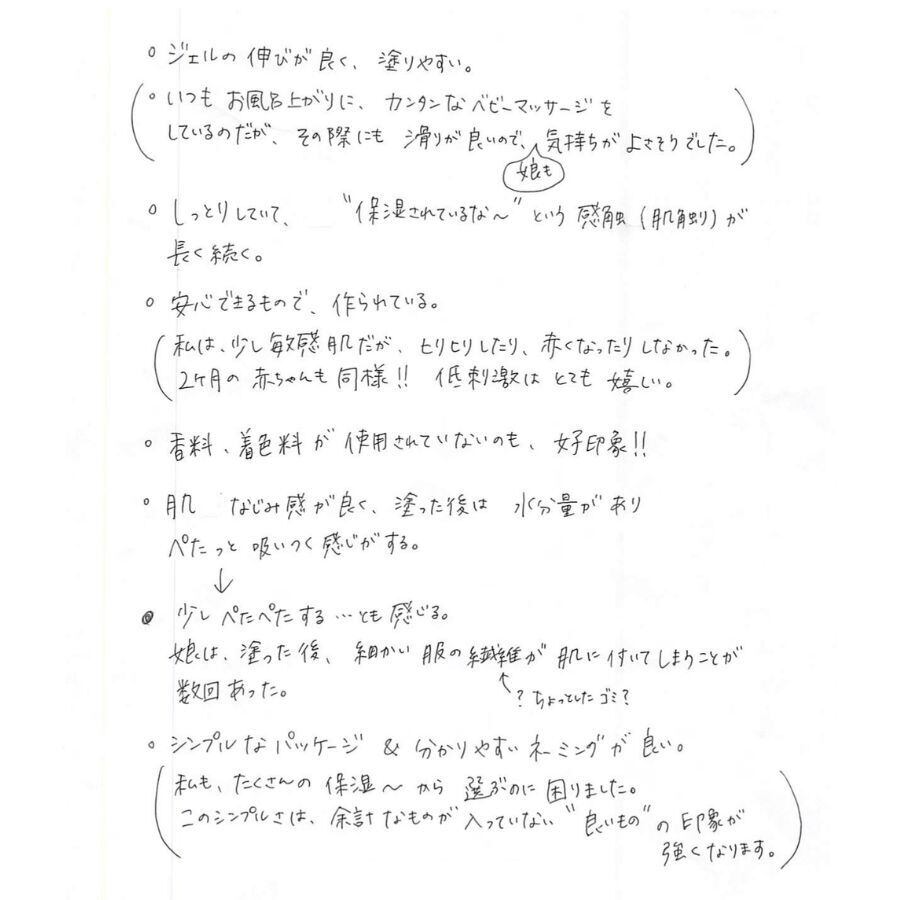 ○ ジェルの伸びが良く、塗りやすい。
(○ いつもお風呂上がりに、カンタンなベビーマッサージを
しているのだが、その際にも滑りが良いので、気持ちがよさそうでした。)
娘も
○ しっとりしていて、“保湿されているな〜”という感触(肌触り)が
長く続く。
○ 安心できるもので、作られている。
(私は、少し敏感肌だが、ヒリヒリしたり、赤くなったりしなかった。
2ヶ月の赤ちゃんも同様!! 低刺激はとても嬉しい。)
○ 香料、着色料が使用されていないのも、好印象!!
○ 肌なじみ感が良く、塗った後は水分量があり
ぺたっと吸いつく感じがする。
↓
● 少しぺたぺたする…とも感じる。
娘は、塗った後、細かい服の繊維が肌に付いてしまうことが
数回あった。
↑
?ちょっとしたゴミ?
○ シンプルなパッケージ & 分かりやすいネーミングが良い。
(私も、たくさんの保湿〜から選ぶのに困りました。
このシンプルさは、余計なものが入っていない“良いもの”の印象が
強くなります。)